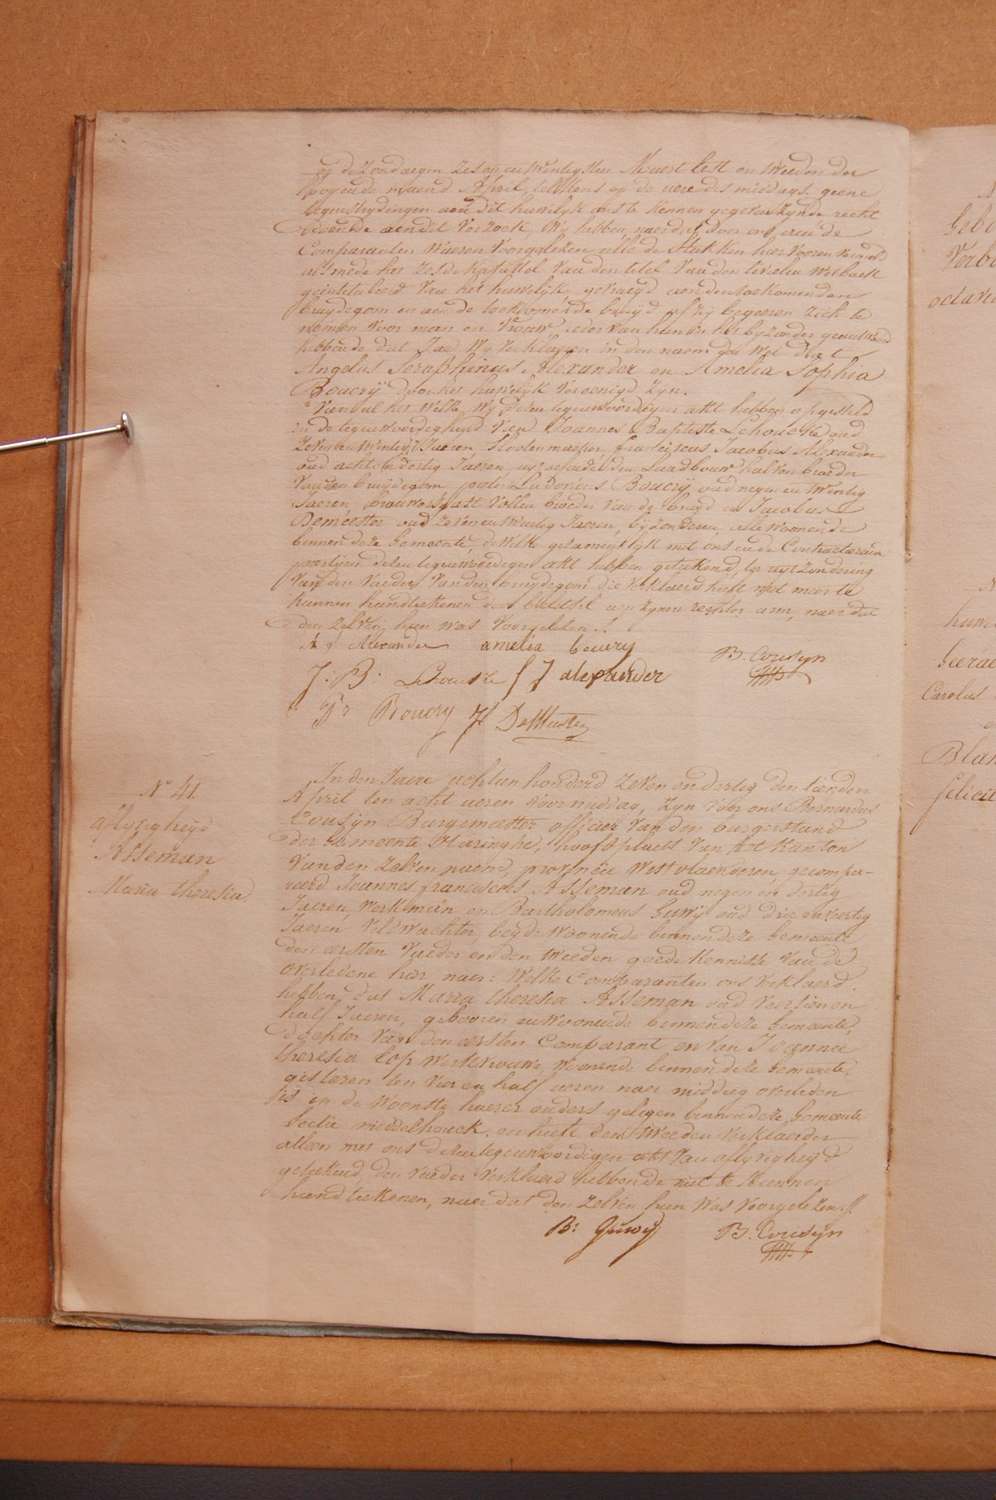 op de Zondagen Zesentwintigsten Maert lest en tweeden der
loopende maend April, telkens op de uere des middags, geene
tegenstrydingen aen dit huwelyk ons te kennen gegeven zynde recht
doende aen dit verzoek, Wy hebben naer dat door ons even de
Comparanten waeren voorgelezen alle de Stukken hier vooren vermeld
als mede het Zesde kapittel van den titel van den burgerlyken wetboek
geintituleerd van het huwelyk, gevraegd aen den toekomenden
bruydegom en aen de toekomende bruyd of zy begeeren zich te
nemen voor man en vrouw, ieder van hun in het byzonder geantwoord
hebbende dat Jae, Wy verklaeren in den naem der Wet dat
Angelus Seraphinus Alexander en Amelia Sophia
Boucry door het huwelyk vereenigd zyn.
Van al het welke Wy dezen tegenwoordigen akt hebben opgesteld
in de tegenwoordigheyd van Joannes Baptiste Lehoucke oud
zeven en twintig Jaeren, Schoolmeester, franciscus Jacobus Alexander
oud acht en dertig Jaeren, landbouwer halven broeder
van den bruydegom, Ludovicus Boucry oud negen en twintig
Jaeren, brouwersgast vollen broeder van de bruyd en Jacobus
Demeester oud zeven en twintig Jaeren, byzonderen, alle woonende
binnen deze Gemeente, dewelke gezamentlyk met ons en de Contracteerende
partyen dezen tegenwoordigen akt hebben geteekend, ter uytzondering
van den vader van den bruydegom die verklaerd heeft niet meer te
kunnen handteekenen door belettel aen zynen rechter arm, naer dat
den zelven hun was voorgelezen./.
A S Alexander amelia boucry B. Cousyn
J. B. Lehoucke f J alexander
Ls Boucry Js DeMeester
N° 41.
aflyvigheyd
Asseman
Maria theresia
In den Jaere achtien honderd zeven en dertig den tienden
April ten acht ueren voormiddag, zyn voor ons Bernardus
Cousyn Burgemeester officier van den burgerstand
der Gemeente Haringhe, hoofdplaets van het Kanton
van den zelven naem, provincie Westvlaenderen, gecompa-
reerd Joannes franciscus Asseman oud negen en dertig
Jaeren, Werkman en Bartholomeus Guwy oud drie en veertig
Jaeren Veldwachter, beyde woonende binnen deze Gemeente
den eersten vader en den tweeden goede kennisse van de
overledene hier naer: Welke Comparanten ons verklaerd
hebben dat Maria theresia Asseman oud veertien en
half Jaeren, gebooren en woonende binnen deze Gemeente,
dochter van den eersten Comparant en van Joannee
theresia Cop werkvrouwe, woonende binnen deze Gemeente,
gisteren ten vier en half ueren naer middag overleden
is in de Woonste haerer ouders gelegen binnen deze Gemeente
Sectie middelhouck, en heeft den tweeden verklaerder
alleen met ons dezen tegenwoordigen akt van aflyvigheyd
geteekend, den vader verklaerd hebbende niet te kunnen
handteekenen, naer dat den zelven hun was voorgelezen./.
B: Guwy B. Cousyn